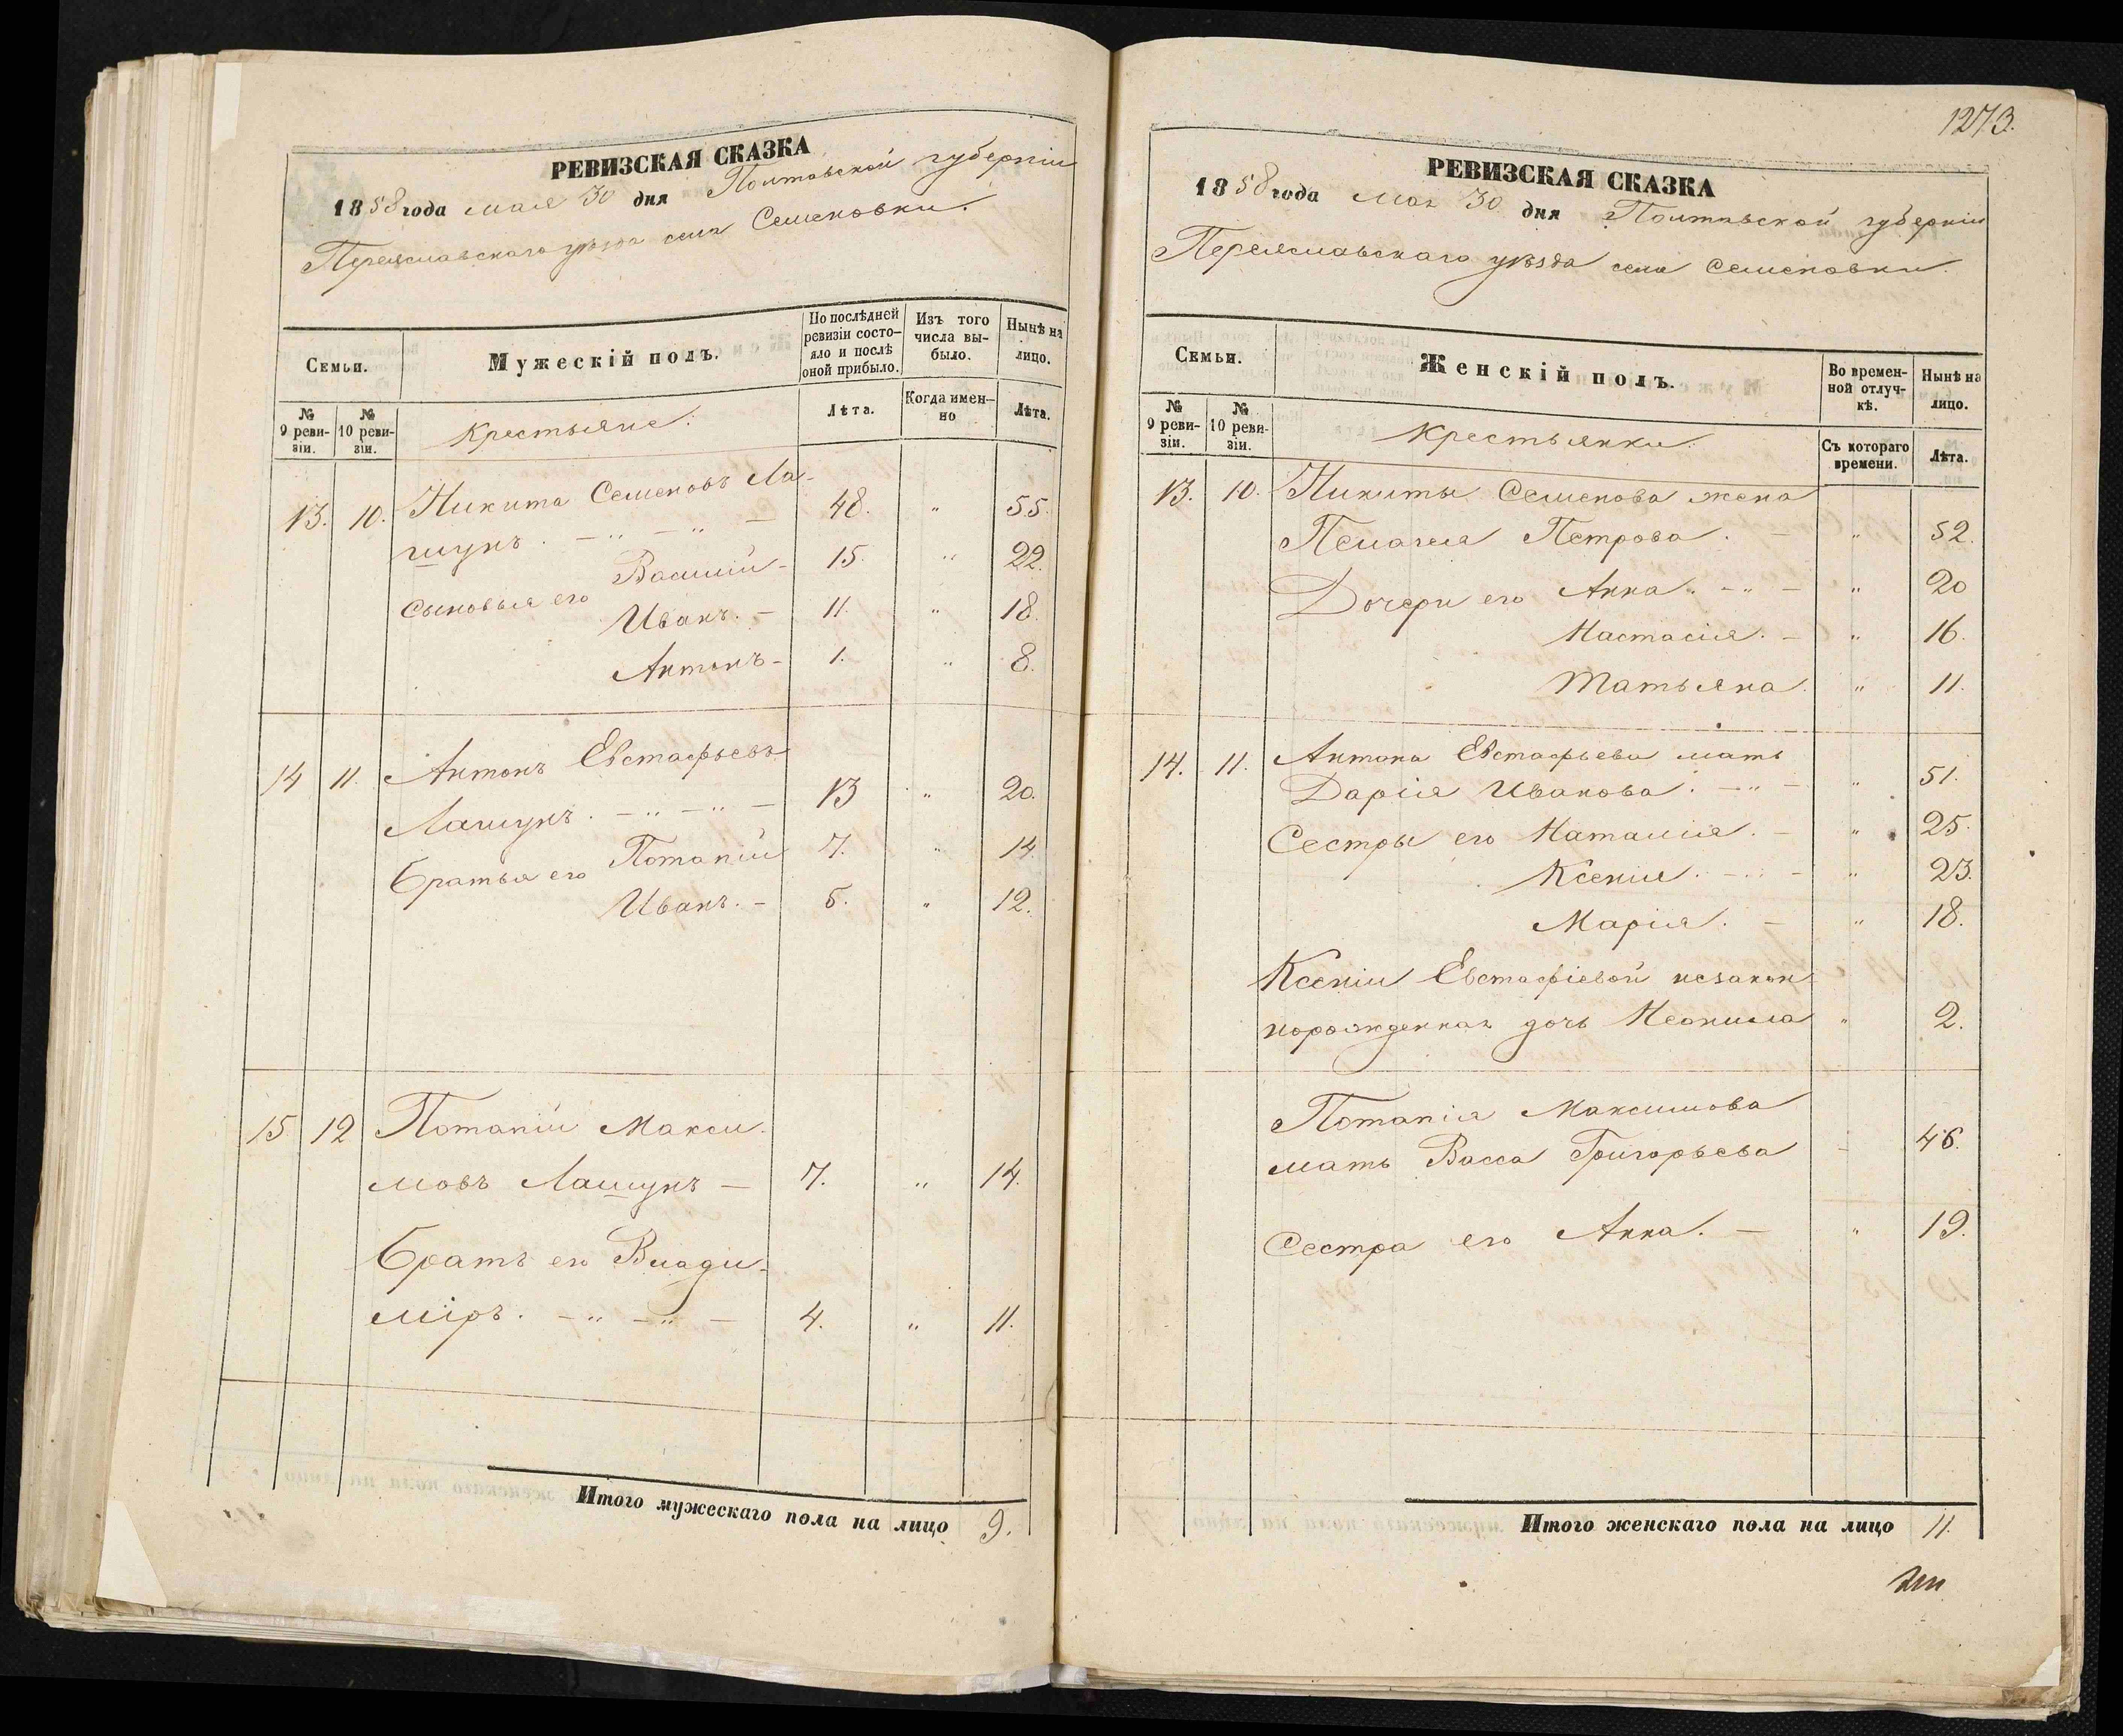 РЕВИЗСКАЯ СКАЗКА
1858 года мая 30 дня Полтавской губерніи
Переяславскаго уѣзда села Семеновки.
Семьи.
Мужескій полъ.
По послѣдней ревизіи состояло и послѣ оной прибыло.
Изъ того числа выбыло.
Нынѣ на лицо.
№ 9 ревизіи.
№ 10 ревизіи.
Крестьяне.
Лѣта.
Когда именно
Лѣта.
13. 10. Никита Семеновъ Ла-
шунъ. — " — " — 48. " 55.
Сыновья его Василій — 15. " 22.
Иванъ. — 11. " 18.
Антонъ — 1. " 8.
14 11. Антонъ Евстафьевъ
Лашунъ. — " — " — 13 " 20.
братья его Потапій 7. " 14.
Иванъ. — 5. " 12.
15 12 Потапій Макси-
мовъ Лашунъ — 7. " 14.
Братъ его Влади-
міръ. — " — " — 4. " 11.
Итого мужескаго пола на лицо 9.
1273.
РЕВИЗСКАЯ СКАЗКА
1858 года мая 30 дня Полтавской губерніи
Переяславскаго уѣзда села Семеновки.
Семьи.
Женскій полъ.
Во временной отлучкѣ.
Нынѣ на лицо.
№ 9 ревизіи.
№ 10 ревизіи.
Крестьянки.
Съ котораго времени.
Лѣта.
13. 10. Никиты Семенова жена
Пелагея Петрова. — " 52.
Дочери его Анна. — " — " 20
Настасія. — " 16.
Татьяна. " 11.
14. 11. Антона Евстафьева мать
Дарія Иванова. — " — " 51.
Сестры его Наталія. — " 25.
Ксенія. — " — " 23.
Марія. — " 18.
Ксеніи Евстафіевой незакон
норожденная дочь Неонила " 2.
Потапія Максимова
мать Васса Григорьева — 46.
Сестра его Анна. — " 19.
Итого женскаго пола на лицо 11.